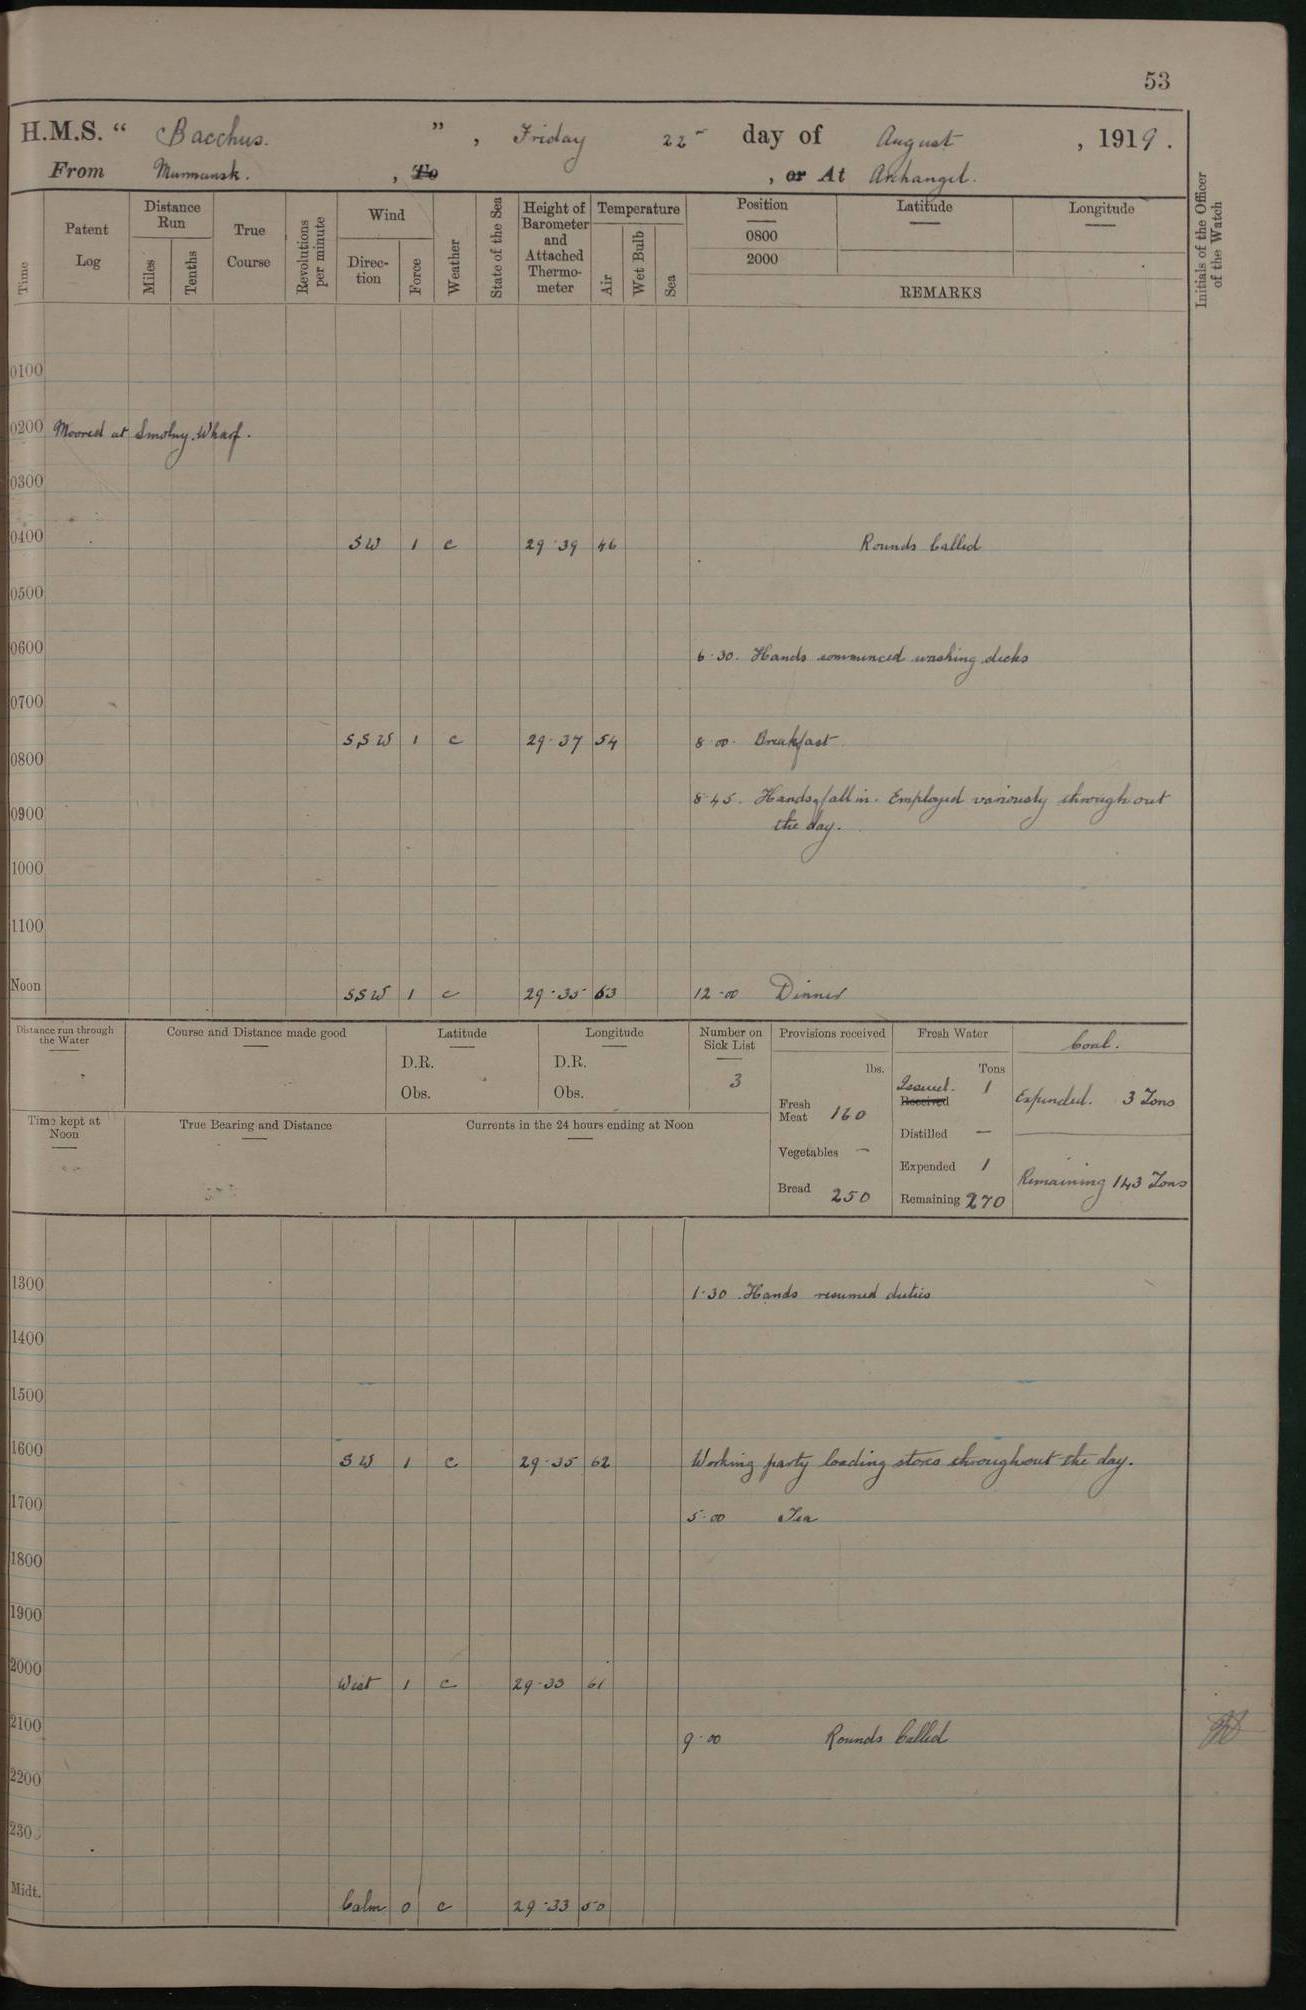 53
H.M.S. " Bacchus. " , Friday 22 day of August , 1919.
From Murmansk. , To , or At Archangel.
Time
Patent Log
Distance Run
Miles
Tenths
True Course
Revolutions per minute
Wind
Direction
Force
Weather
State of the Sea
Height of Barometer and Attached Thermometer
Temperature
Air
Wet Bulb
Sea
Position
0800
2000
Latitude
Longitude
REMARKS
Initials of the Officer of the Watch
0100
0200 Moored at Smolny Wharf.
0300
0400 SW 1 c 29·39 46 Rounds Called
0500
0600 6·30. Hands commenced washing decks
0700
SSW 1 c 29·37 54 8·00. Breakfast
0800
8·45. Hands fall in. Employed variously throughout
0900 the day.
1000
1100
Noon SSW 1 c 29·35 63 12·00 Dinner
Distance run through the Water
Course and Distance made good
Latitude
D.R.
Obs.
Longitude
D.R.
Obs.
Number on Sick List
3
Provisions received
lbs.
Fresh Meat 160
Vegetables —
Bread 250
Fresh Water
Tons
Issued. 1
Received
Distilled —
Expended 1
Remaining 270
Coal.
Expended. 3 Tons
Remaining 143 Tons
Time kept at Noon
True Bearing and Distance
Currents in the 24 hours ending at Noon
1300 1·30 Hands resumed duties
1400
1500
1600 SW 1 c 29·35 62 Working party loading stores throughout the day.
1700 5·00 Tea
1800
1900
2000 West 1 c 29·33 61
2100 9·00 Rounds Called
2200
2300
Midt. Calm 0 c 29·33 50